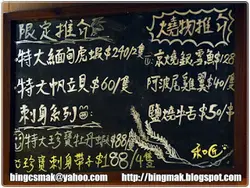 限定推介
特大緬甸虎蝦$240/2隻
特大帆立貝$60/隻
刺身系列
特大珍寶牡丹蝦$88/隻
珍寶刺身帶子$188/4隻
燒物推介
京燒銀鱈魚$128
阿波尼雞翼$40/件
鹽燒牛舌$50/串
bingcsmak@yahoo.com / http://bingmak.blogspot.com